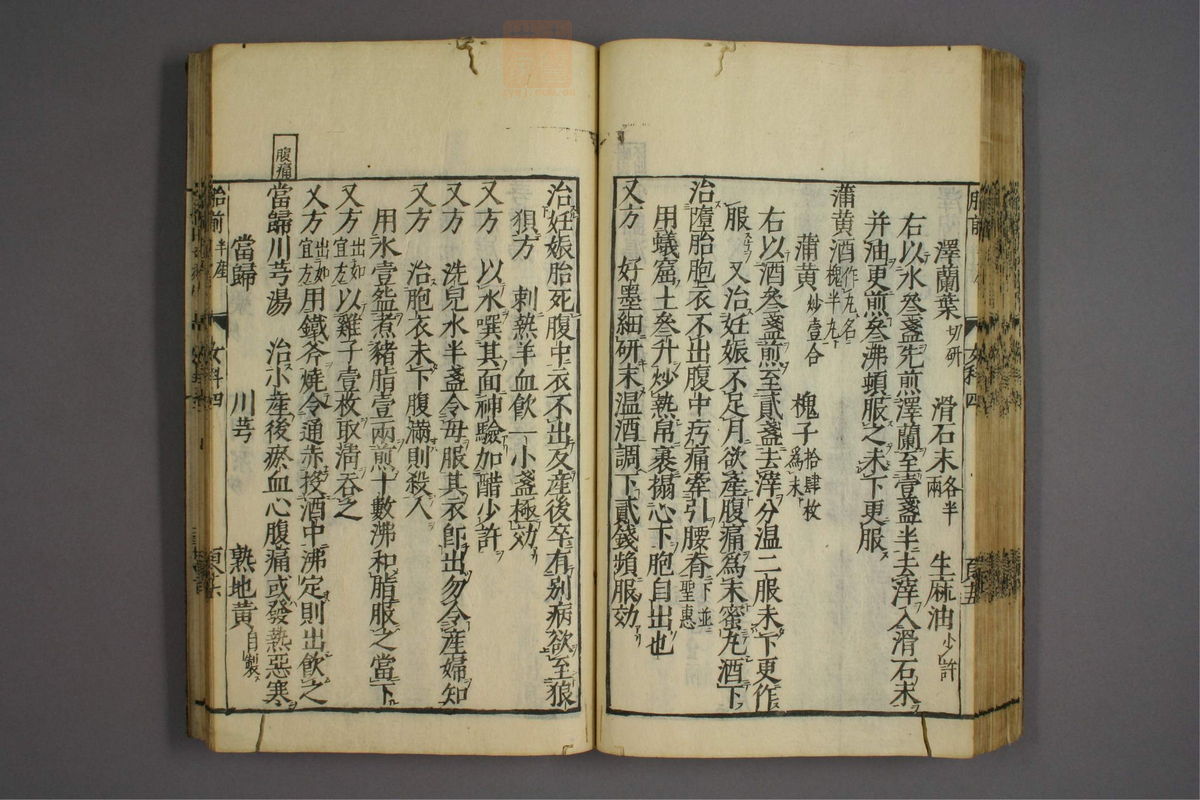 澤蘭葉切研　滑石末各半兩　生麻油少許
右以水叄盞先煎澤蘭至壹盞半去滓入滑石末
并油更煎叄沸頓服之未下更服
蒲黄酒作丸名槐半丸
蒲黄炒壹合　槐子拾肆枚爲末
右以酒叄盞煎至貳盞去滓分温二服未下更作
服　又治妊娠不足月欲產腹痛爲末蜜丸酒下
治墮胎胞衣不出腹中㽲痛牽引腰脊下並聖惠
用蟻窟土叄升炒熱帛裹搨心下胞自出也
又方　好墨細研末温酒調下貳錢頻服効
治妊娠胎死腹中衣不出及產後卒有别病欲至狼
狽方　刺熱羊血飲一小盞極効
又方　以水噀其面神驗加醋少許
又方　洗兒水半盞令母服其衣卽出勿令產婦知
又方　治胞衣未下腹滿則殺人
用水壹盌煮豬脂壹兩煎十數沸和脂服之當下
又方出如宜左以雞子壹枚取清吞之
又方出如宜左用鐵斧燒令通赤移酒中沸定則出飲之
腹痛
當歸川芎湯　治小產後瘀血心腹痛或發熱惡寒
當歸　川芎　熟地黄自製
胎前半產　女科四